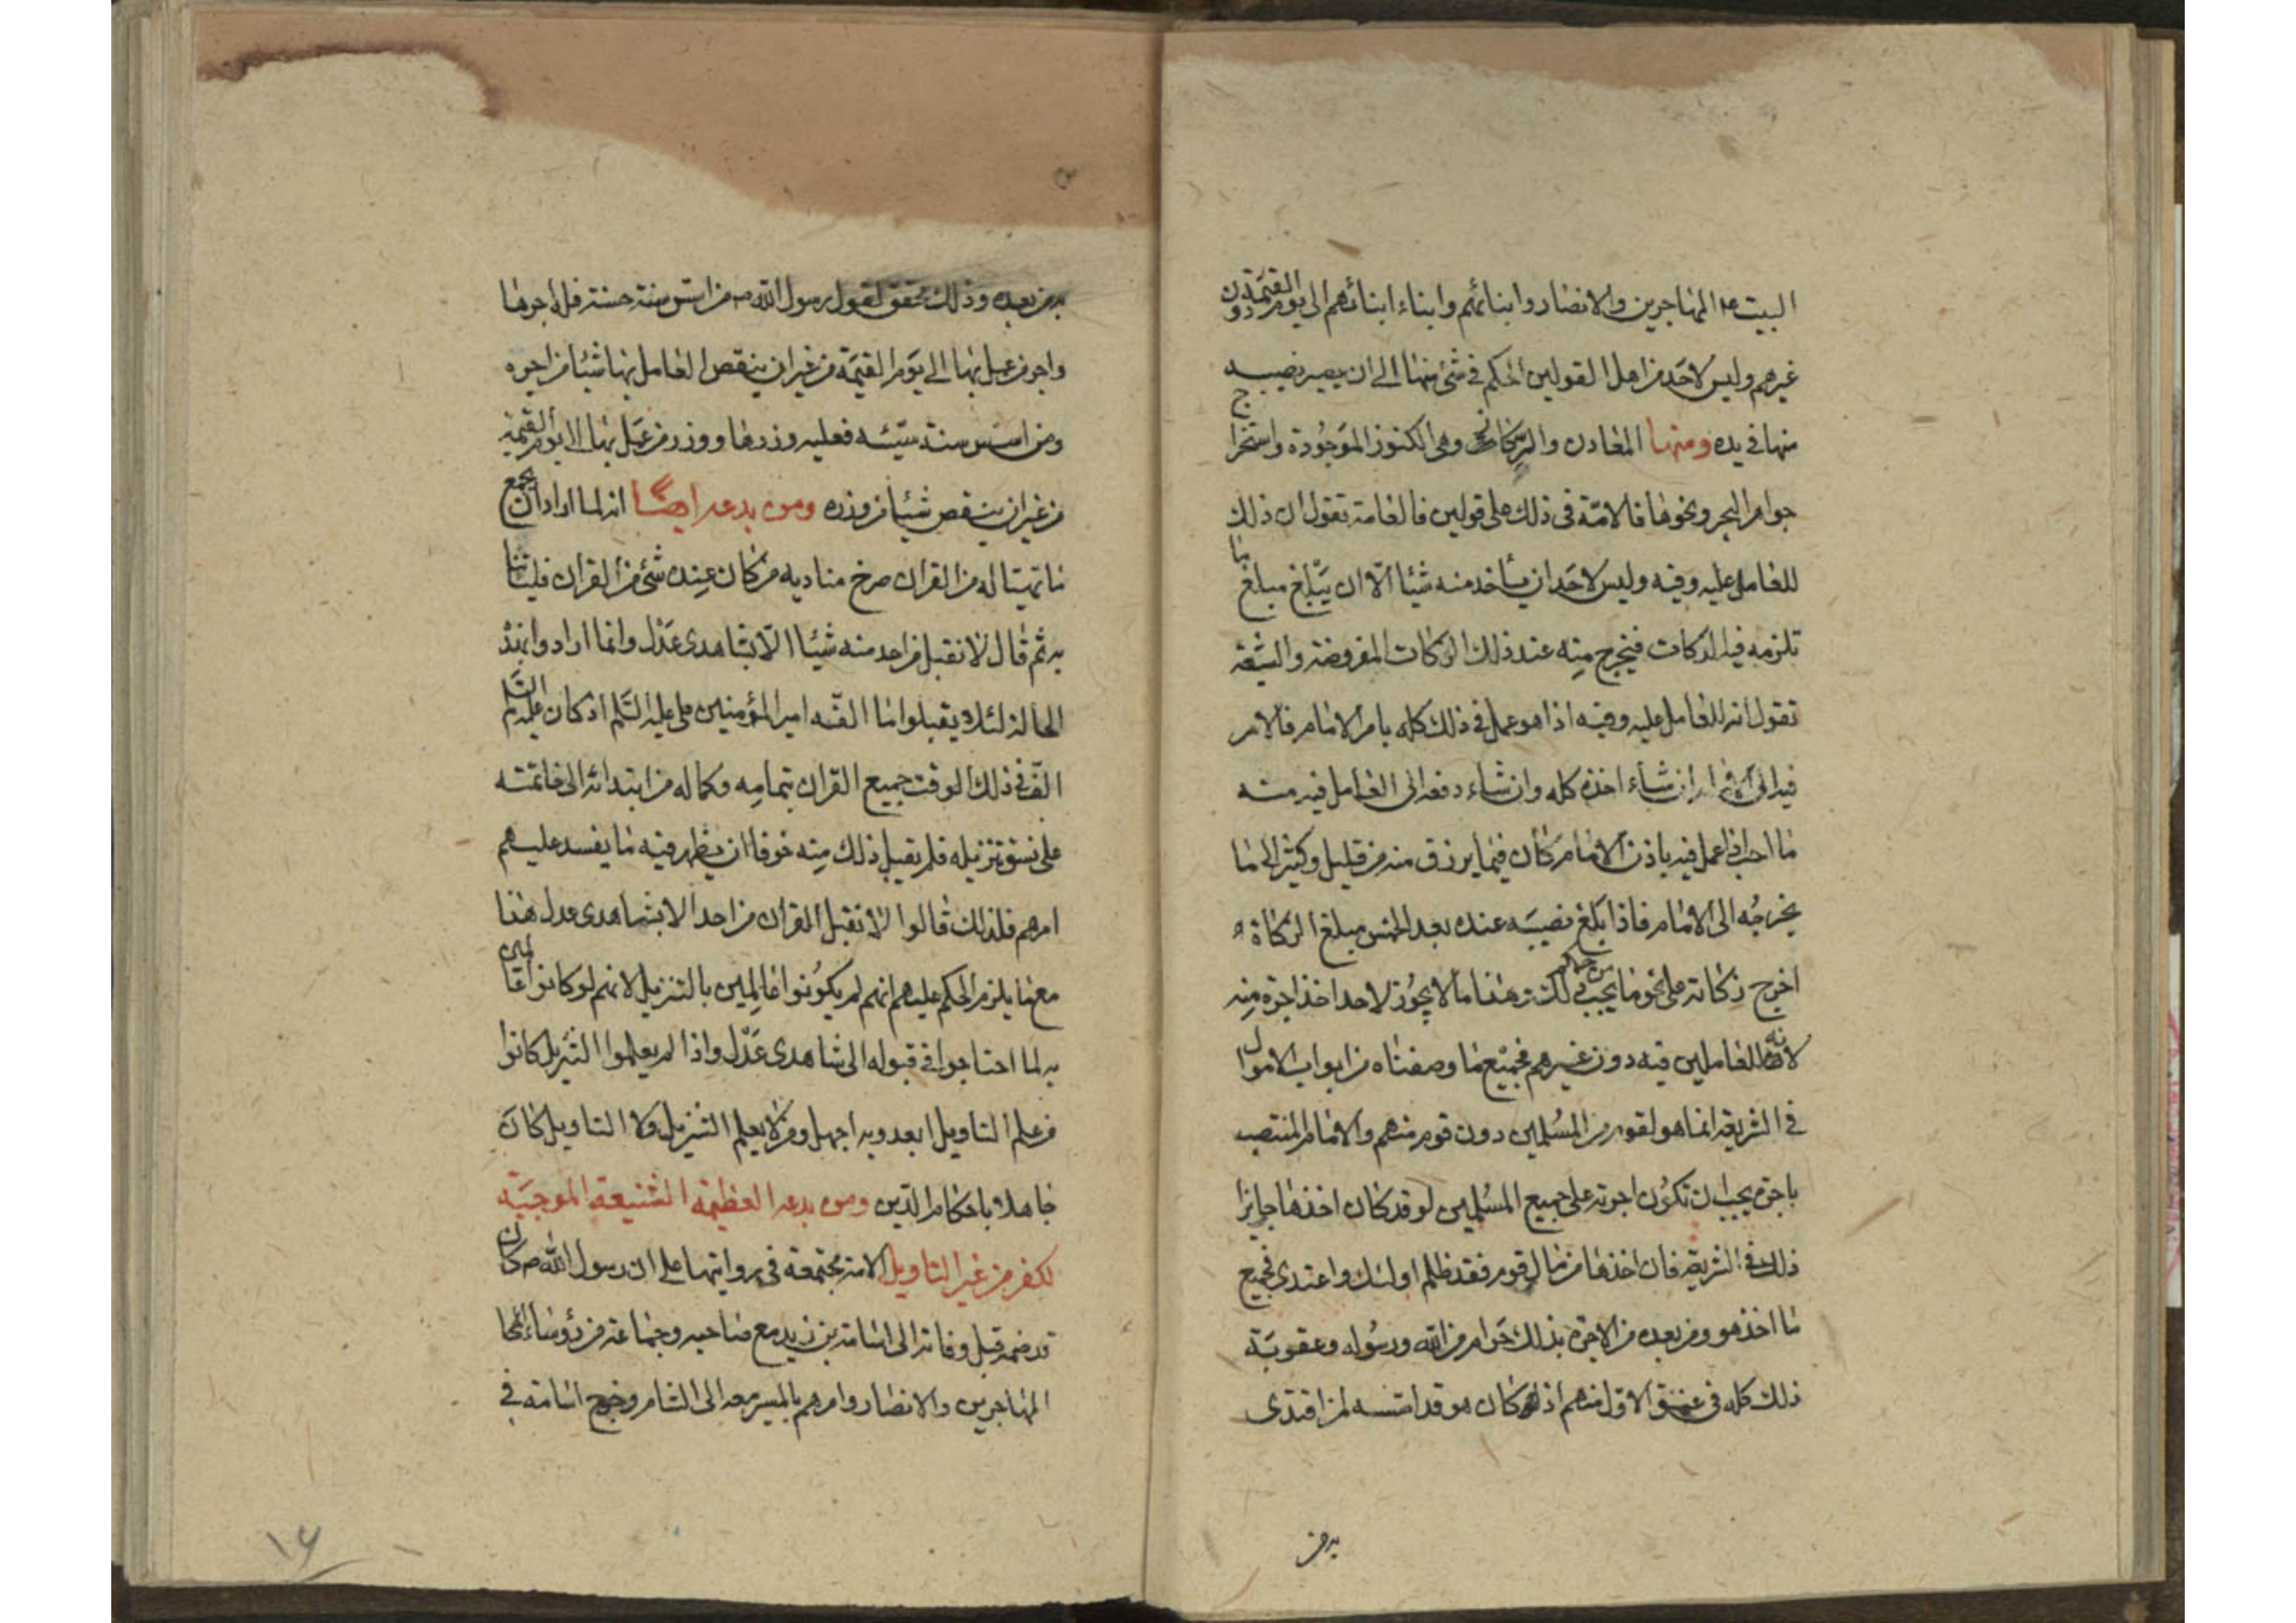 البيت عد المهاجرين والانصار وابنائهم وابناء ابنائهم الى يوم القيمة دون
غيرهم وليس لاحد من اهل القولين الحكم في شئ منها الى ان يصير نصيبه
منها في يده ومنها المعادن والركائز وهي الكنوز الموجودة واستخراج
جواهر البحر ونحوها فالامة في ذلك على قولين فالعامة تقول ان ذلك
للعامل عليه وفيه وليس لاحد ان يأخذ منه شيئا الا ان يبلغ مبلغ ما
تلزمه فيه الزكات فيخرج منه عند ذلك الزكات المفروضة والشيعة
تقول انه للعامل عليه وفيه اذا هو عمل في ذلك كله بامر الامام فالامر
فيه الى الامام ان شاء اخذه كله وان شاء دفعه الى العامل فيه منه
ما احب اذا عمل فيه باذن الامام كان فيما يرزق منه من قليل وكثير الى ما
يخرجه الى الامام فاذا بلغ نصيبه عنده بعد الخمس مبلغ الزكاة
اخرج زكاته على نحو ما يجب في ذلك وهذا ما لا يجوز لاحد اخذ اجرة منه
لانه للعاملين فيه دون غيرهم فجميع ما وصفناه من ابواب الاموال
في الشريعة انما هو لقوم من المسلمين دون قوم منهم والامام المنتصب
باجرة يجب ان تكون اجرته على جميع المسلمين لو قد كان اخذها جايزا
ذلك في الشريعة فان اخذها من مال قوم فقد ظلم اولئك واعتدى فجميع
ما اخذ هو ومن بعده من الاجرة بذلك حرام من الله ورسوله وعقوبة
ذلك كله في عنق الاول منهم اذ كان هو قد اسسه لمن اقتدى
به من
به من بعده وذلك محقق لقول رسول الله ص من اسس سنة حسنة فله اجرها
واجر من عمل بها الى يوم القيمة من غير ان ينقص العامل بها شيئا من اجره
ومن اسس سنة سيئه فعليه وزرها ووزر من عمل بها الى يوم القيمة
من غير ان ينقص شيئا من وزره ومن بدعه ايضا انه لما اراد ان يجمع
ما تهيتا له من القران صرخ مناديه من كان عنده شئ من القران فلياتنا
به ثم قال لا نقبل من احد منه شيئا الا بشاهدى عدل وانما ارادوا بهذه
الحالة لئلا يقبلوا ما الفه امير المؤمنين على عليه السلم اذ كان عليه السلم
الف في ذلك الوقت جميع القران بتمامه وكماله من ابتدائه الى خاتمته
على نسق تنزيله فلم يقبل ذلك منه خوفا ان يظهر فيه ما يفسد عليهم
امرهم فلذلك قالوا لا نقبل القران من احد الا بشاهدى عدل هذا
مع ما يلزم الحكم عليهم انهم لم يكونوا عالمين بالتنزيل لانهم لو كانوا عالمين
به لما احتاجوا في قبوله الى شاهدى عدل واذا لم يعلموا التنزيل كانوا
من علم التاويل ابعد وبه اجهل ومن لا يعلم التنزيل ولا التاويل كان
جاهلا باحكام الدين ومن بدعه العظيمة الشنيعة الموجبة
لكفر من غير التاويل الامة مجتمعة في روايتها على ان رسول الله ص كان
قد ضمه قبل وفاته الى اسامة بن زيد مع صاحبه وجماعة من رؤساء
المهاجرين والانصار وامرهم بالمسير معه الى الشام وخرج اسامة في
۱۶